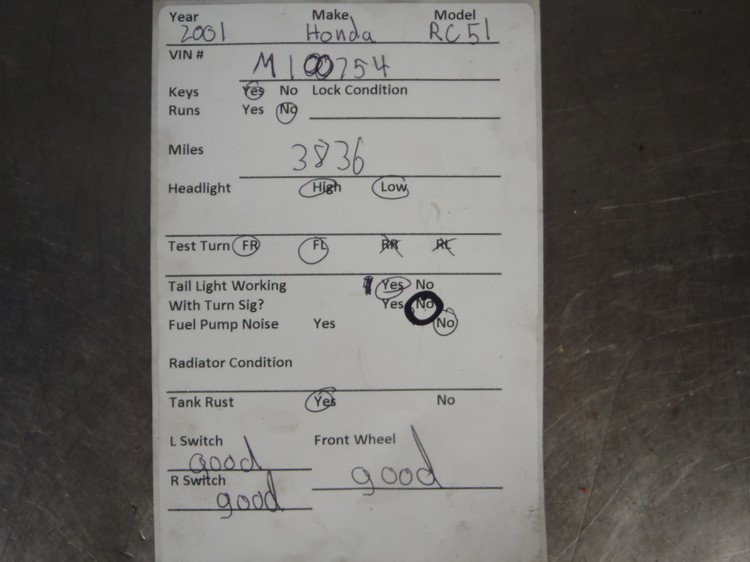 Year Make Model
2001 Honda RC51
VIN # M100754
Keys Yes No Lock Condition
Runs Yes No
Miles 3836
Headlight High Low
Test Turn FR FL RR RL
Tail Light Working Yes No
With Turn Sig? Yes No
Fuel Pump Noise Yes No
Radiator Condition
Tank Rust Yes No
L Switch Front Wheel
good good
R Switch
good